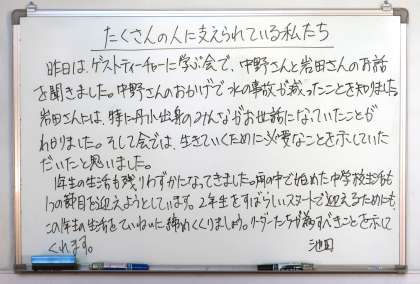 たくさんの人に支えられている私たち
昨日は、ゲストティーチャーに学ぶ会で、中野さんと岩田さんのお話
を聞きました。中野さんのおかげで水の事故が減ったことを知りました。
岩田さんには、特に丹小出身のみんながお世話になっていたことが
わかりました。そして会では、生きていくために必要なことを示していた
だいたと思いました。
1年生の生活も残りわずかになってきました。雨の中で始めた中学校生活も
1つの節目を迎えようとしています。2年生をすばらしいスタートで迎えるためにも、
この1年生の生活をていねいに締めくくりましょう。リーダーたちが為すべきことを示して
くれます。
池田